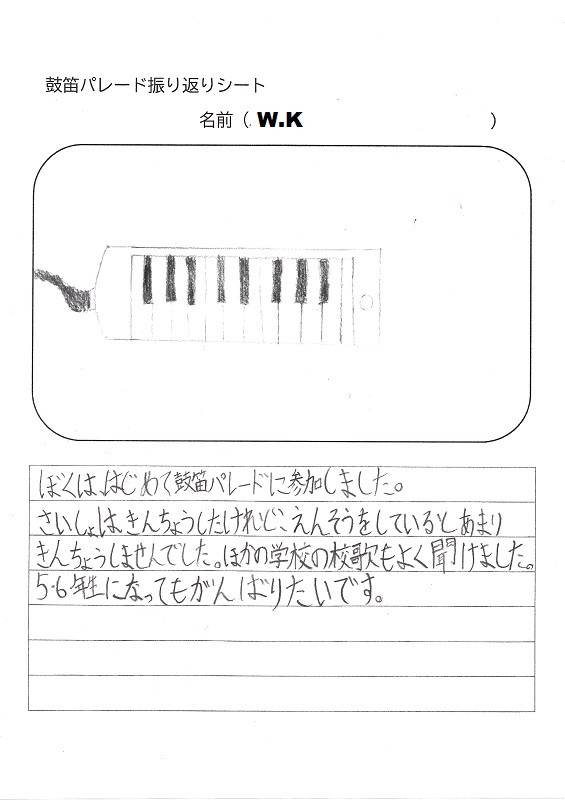 鼓笛パレード振り返りシート
名前（. W.K ）
ぼくは、はじめて鼓笛パレードに参加しました。
さいしょは、きんちょうしたけれど、えんそうをしているとあまり
きんちょうしませんでした。ほかの学校の校歌もよく聞けました。
5・6年生になってもがんばりたいです。